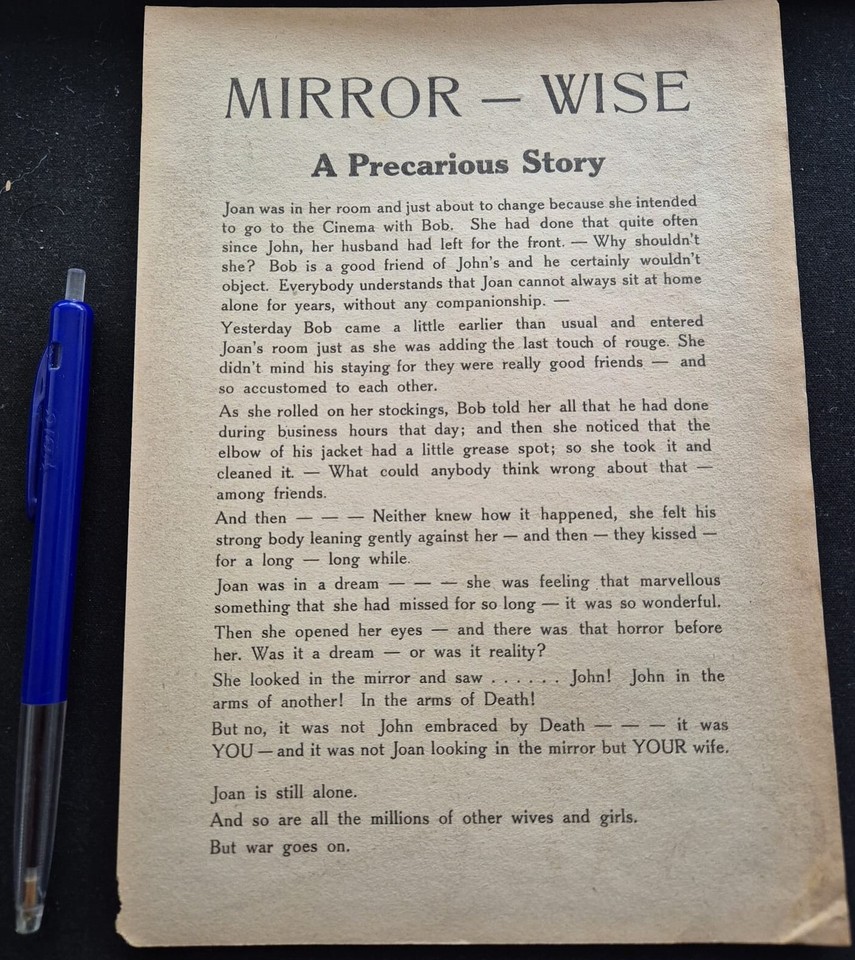 MIRROR — WISE
A Precarious Story
Joan was in her room and just about to change because she intended
to go to the Cinema with Bob. She had done that quite often
since John, her husband had left for the front. — Why shouldn't
she? Bob is a good friend of John's and he certainly wouldn't
object. Everybody understands that Joan cannot always sit at home
alone for years, without any companionship. —
Yesterday Bob came a little earlier than usual and entered
Joan's room just as she was adding the last touch of rouge. She
didn't mind his staying for they were really good friends — and
so accustomed to each other.
As she rolled on her stockings, Bob told her all that he had done
during business hours that day; and then she noticed that the
elbow of his jacket had a little grease spot; so she took it and
cleaned it. — What could anybody think wrong about that —
among friends.
And then — — — Neither knew how it happened, she felt his
strong body leaning gently against her — and then — they kissed —
for a long — long while.
Joan was in a dream — — — she was feeling that marvellous
something that she had missed for so long — it was so wonderful.
Then she opened her eyes — and there was that horror before
her. Was it a dream — or was it reality?
She looked in the mirror and saw . . . . . . John! John in the
arms of another! In the arms of Death!
But no, it was not John embraced by Death — — — it was
YOU — and it was not Joan looking in the mirror but YOUR wife.
Joan is still alone.
And so are all the millions of other wives and girls.
But war goes on.